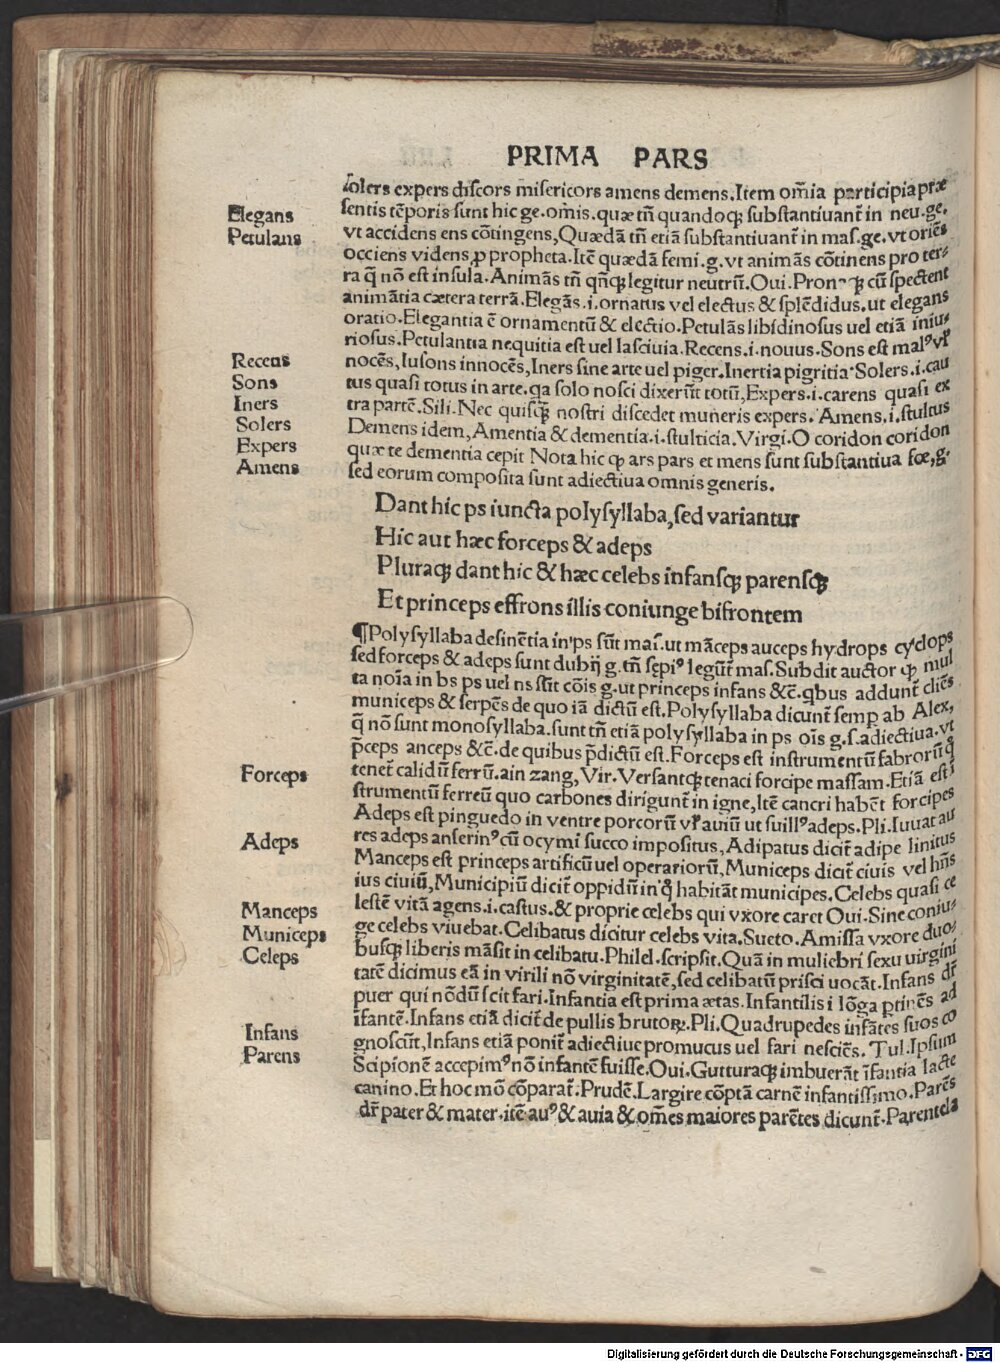 PRIMA PARS
solers expers discors misericors amens demens.Item om̄ia participia præ
sentis tẽporis sunt hic ge.omīs.quæ tñ quandoqꝫ substantiuant̃ in neu.ge.
vt accidens ens cõtingens,Quædã tñ etiã substantiuant̃ in mas.ge.vt oriẽs
occiens videns,ꝓ propheta.Itẽ quædã femi.g.vt animãs cõtinens pro ter⸗
ra q̃ nõ est insula.Animãs tñ qñqꝫ legitur neutrũ.Oui.Pronaqꝫ cũ spectent
animãtia cætera terrã.Elegãs.i.ornatus vel electus & splẽdidus.ut elegans
oratio.Elegantia ẽ ornamentũ & electio.Petulãs libidinosus uel etiã iniu⸗
riosus.Petulantia nequitia est uel lasciuia.Recens.i.nouus.Sons est malꝰ vl̃
nocẽs,Iusons innocẽs,Iners sine arte uel piger.Inertia pigritia.Solers.i.cau
tus quasi totus in arte.qa solo nosci dixerũt totũ,Expers.i.carens quasi ex
tra partẽ.Sili.Nec quisqꝫ nostri discedet muneris expers.Amens.i.stultus
Demens idem,Amentia & dementia.i.stulticia.Virgi.O coridon coridon
quæ te dementia cepit Nota hic ꝙ ars pars et mens sunt substantiua fœ.g.
sed eorum composita sunt adiectiua omnis generis.
Elegans
Petulans
Recens
Sons
Iners
Solers
Expers
Amens
Dant hic ps iuncta polysyllaba,sed variantur
Hic aut hæc forceps & adeps
Pluraqꝫ dant hic & hæc celebs infansqꝫ parensqꝫ
Et princeps effrons illis coniunge bifrontem
¶Polysyllaba desinẽtia in ps sũt mas.ut mãceps auceps hydrops cyclops
sed forceps & adeps sunt dubij g.tñ sępiꝰ legũt̃ mas.Subdit auctor ꝙ mul
ta noĩa in bs ps uel ns sũt cõis g.ut princeps infans &c̃.qbus addunt̃ cliẽs
municeps & serpẽs de quo iã dictũ est.Polysyllaba dicunt̃ semp ab Alex,
q̃ nõ sunt monosyllaba.sunt tñ etiã polysyllaba in ps oīs g.s.adiectiua.vt
p̃ceps anceps &c̃.de quibus p̃dictũ est.Forceps est instrumentũ fabrorũ q̃
tenet̃ calidũ ferrũ.ain zang,Vir.Versantqꝫ tenaci forcipe massam.Etiã est ĩ
strumentũ ferreũ quo carbones dirigunt̃ in igne,Itẽ cancri habẽt forcipes
Adeps est pinguedo in ventre porcorũ vl̃ auiũ ut suillꝰ adeps.Pli.Iuuat au
res adeps anserinꝰ cũ ocymi succo impositus,Adipatus dicit̃ adipe linitus
Manceps est princeps artificũ uel operariorũ,Municeps dicit̃ ciuis vel hñs
ius ciuiũ,Municipiũ dicit̃ oppidũ in q̃ habitãt municipes.Celebs quasi ce
lestẽ vitã agens.i.castus.& proprie celebs qui vxore caret Oui.Sine coniu⸗
ge celebs viuebat.Celibatus dicitur celebs vita.Sueto.Amissa vxore duo⸗
busqꝫ liberis mãsit in celibatu.Philel.scripsit.Quã in muliebri sexu uirgini
tatẽ dicimus eã in virili nõ virginitatẽ,sed celibatũ prisci uocãt.Infans dr̃
puer qui nõdũ scit fari.Infantia est prima ætas.Infantilis i lõga ptinẽs ad
ĩfantẽ.Infans etiã dicit̃ de pullis brutoꝝ.Pli.Quadrupedes infãtes suos co
gnoscũt,Infans etiã ponit̃ adiectiue pro mucus uel fari nesciẽs.Tul.Ipsum
Scipionẽ accepimꝰ nõ infantẽ fuisse.Oui.Gutturaqꝫ imbuerãt ĩfantia lacte
canino.Et hoc mõ cõparat̃.Prudẽ.Largire cõptã carnẽ infantissimo.Parẽs
dr̃ pater & mater.itẽ auꝰ & auia & om̃es maiores parẽtes dicunt̃.Parentela
Forceps
Adeps
Manceps
Municeps
Celeps
Infans
Parens
Digitalisierung gefördert durch die Deutsche Forschungsgemeinschaft - DFG